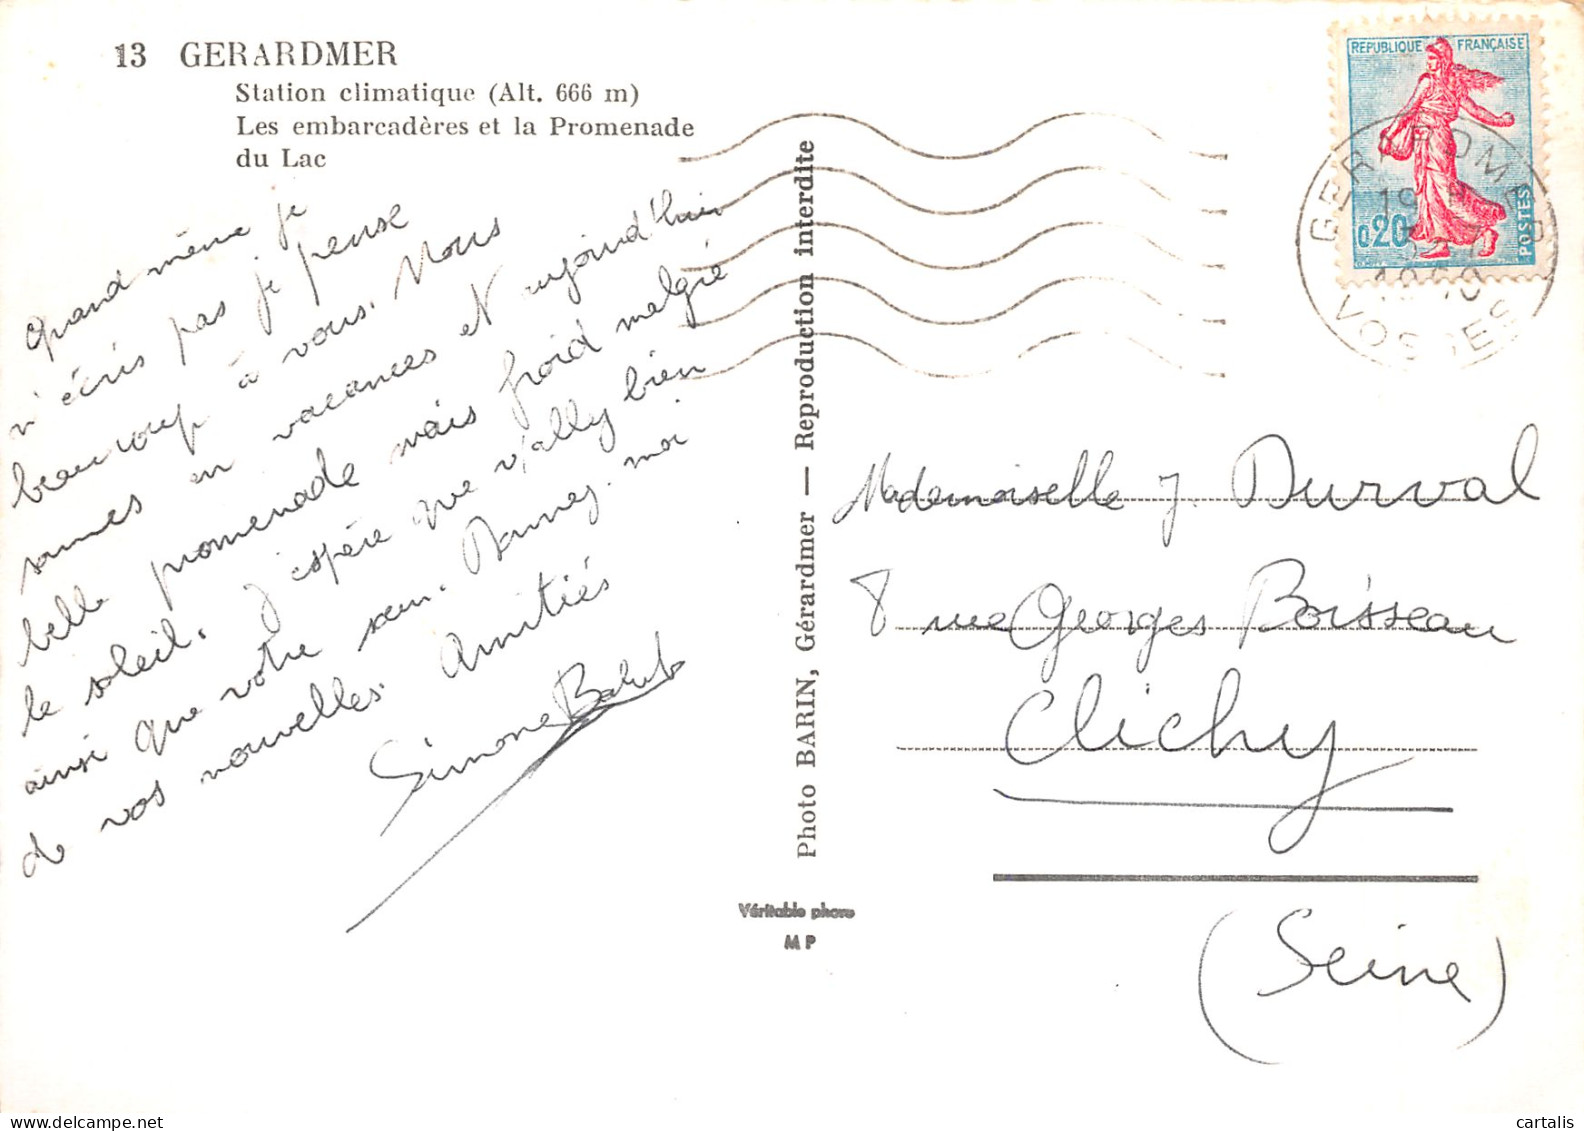 13 GERARDMER
Station climatique (Alt. 666 m)
Les embarcadères et la Promenade
du Lac
Quand même je
n'écris pas je pense
beaucoup à vous. Nous
sommes en vacances et aujourd'hui
belle promenade mais froid malgré
le soleil. J'espère que v/ allez bien
ainsi que votre sœur. Donnez-moi
de vos nouvelles. Amitiés
Simone
Photo BARIN, Gérardmer — Reproduction interdite
Véritable photo
M P
REPUBLIQUE FRANÇAISE
0,20
POSTES
GERARDMER
19
1960
VOSGES
Mademoiselle J. Durval
8 rue Georges Boisseau
Clichy
(Seine)
cartalis